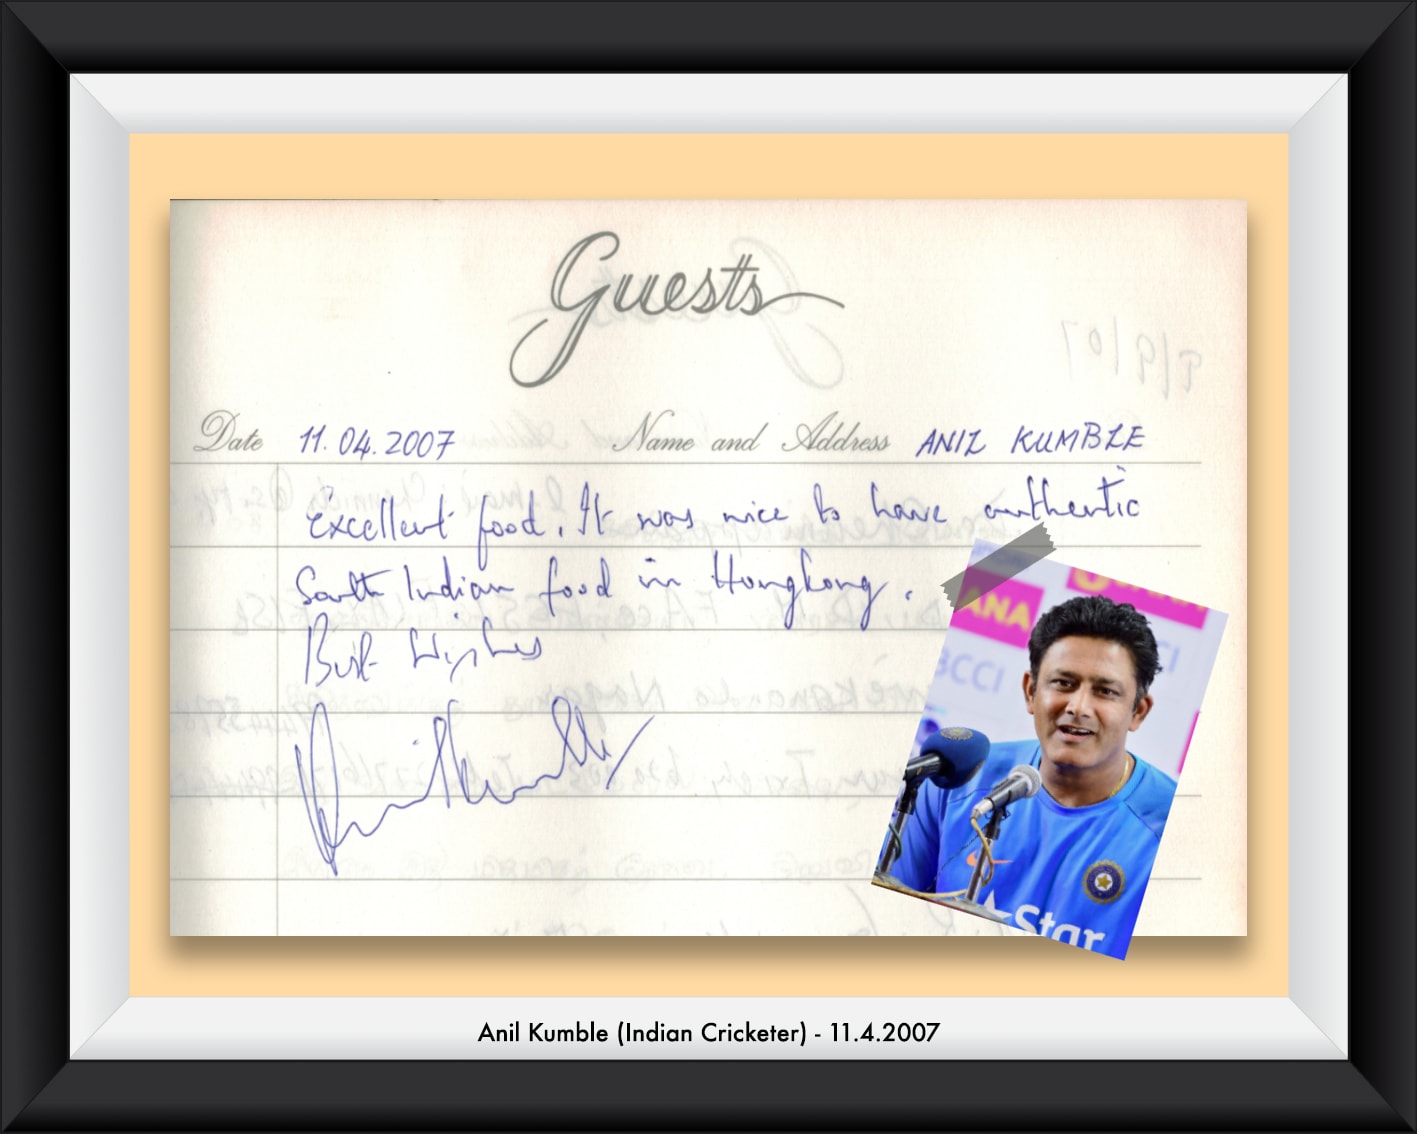 Guests
Date 11.04.2007 Name and Address ANIL KUMBLE
Excellent food. It was nice to have authentic
South Indian food in Hongkong.
Best Wishes
Anil Kumble
ANA
BCCI
CI
Star
8/9/07
Anil Kumble (Indian Cricketer) - 11.4.2007